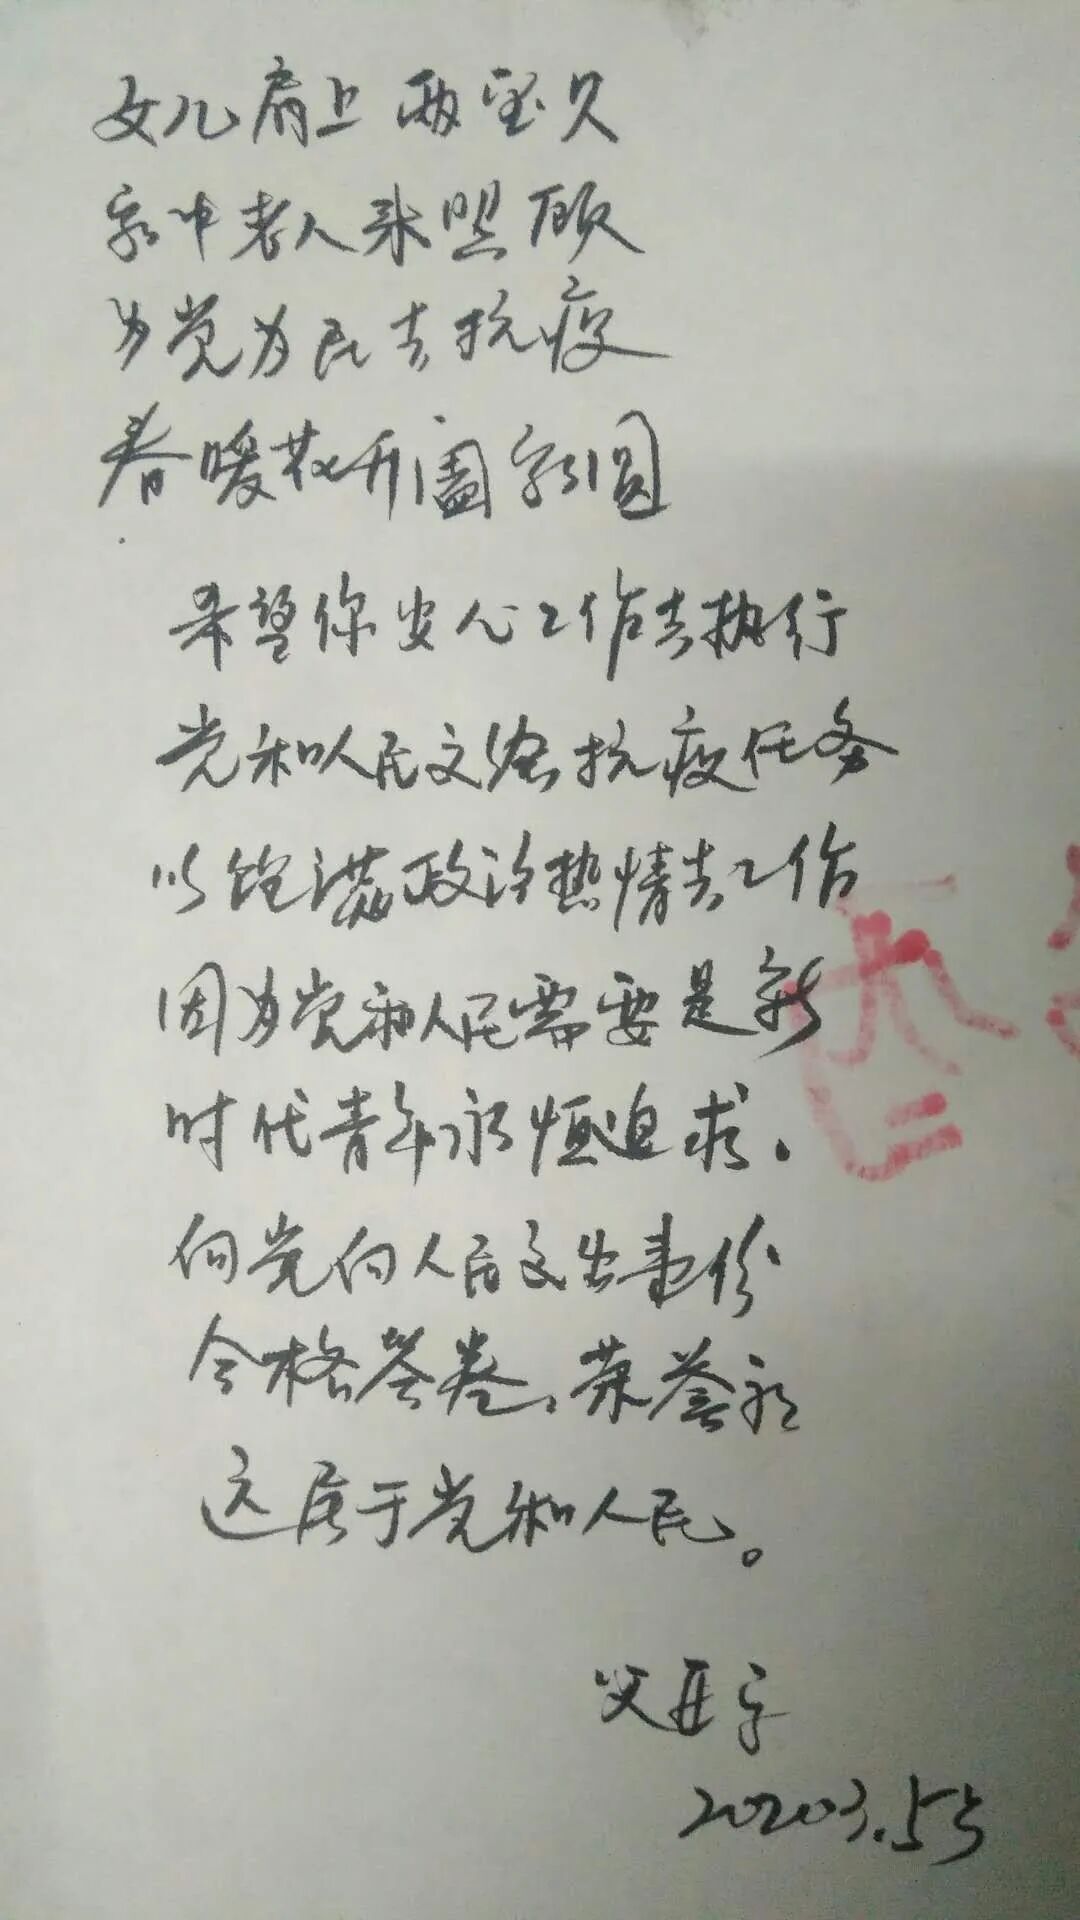 女儿肩上两宝贝
家中老人来照顾
为党为民去抗疫
春暖花开阖家圆
希望你安心工作去执行
党和人民交给抗疫任务
以饱满政治热情去工作
因为党和人民需要是新
时代青年永恒追求.
向党向人民交出一份
合格答卷,荣誉永
远属于党和人民。
父亚字
2020.3.5号